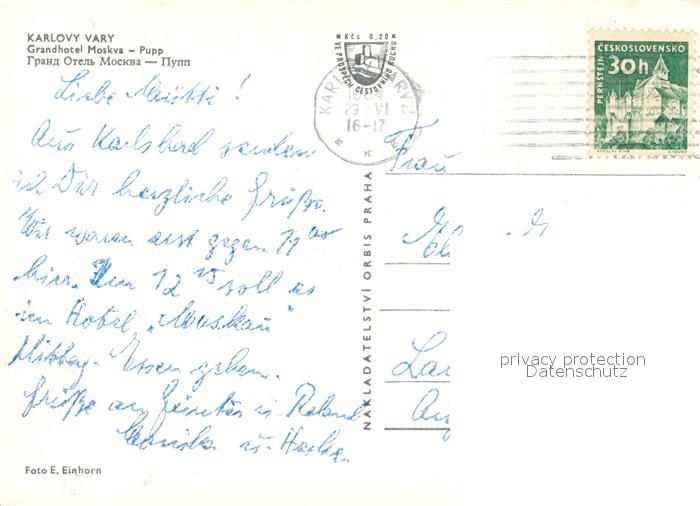 KARLOVY VARY
Grandhotel Moskva – Pupp
Гранд Отель Москва — Пупп
Liebe Mutti!
Aus Karlsbad senden
wir Dir herzliche Grüße.
Wir waren erst gegen 11
hier. Um 12 15 soll es
im Hotel „Moskau"
Mittag-Essen geben.
Grüße an Günter u. Roland
u.
Foto E. Einhorn
NAKLADATELSTVÍ ORBIS PRAHA
* Kčs 0,20 *
VE PROSPĚCH CESTOVNÍHO RUCHU
KARLOVY VARY
29 VI
16-17
ČESKOSLOVENSKO
30h
PERNŠTEJN
Frau
privacy protection
Datenschutz